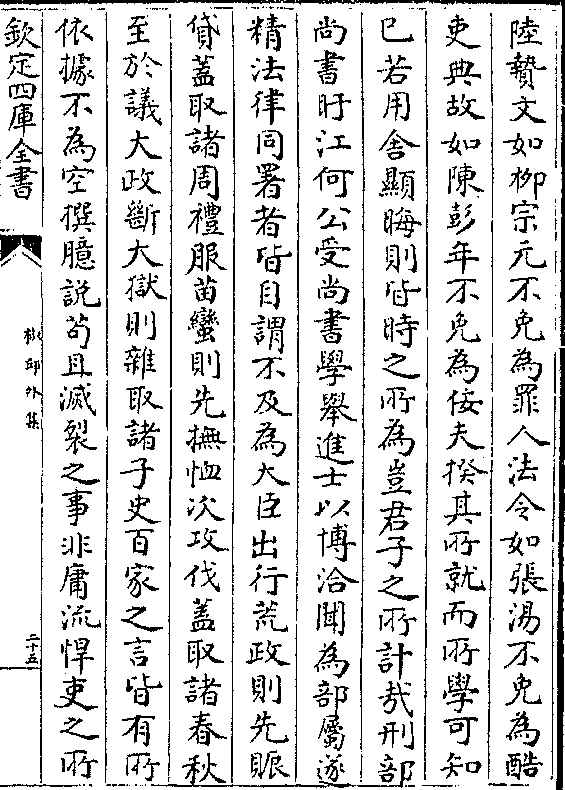 陸贄文如柳宗元不免為罪人法令如張湯不免為酷
吏典故如陳彭年不免為佞夫揆其所就而所學可知
已若用舍顯晦則皆時之所為豈君子之所計哉刑部
尚書盱江何公受尚書學舉進士以博洽聞為部屬遂
精法律同署者皆自謂不及為大臣出行荒政則先賑
貸蓋取諸周禮服苗蠻則先撫恤次攻伐蓋取諸春秋
至於議大政斷大獄則雜取諸子史百家之言皆有所
依據不為空撰臆說苟且滅裂之事非庸流悍吏之所
欽定四庫全書
椒邱外集
二十五